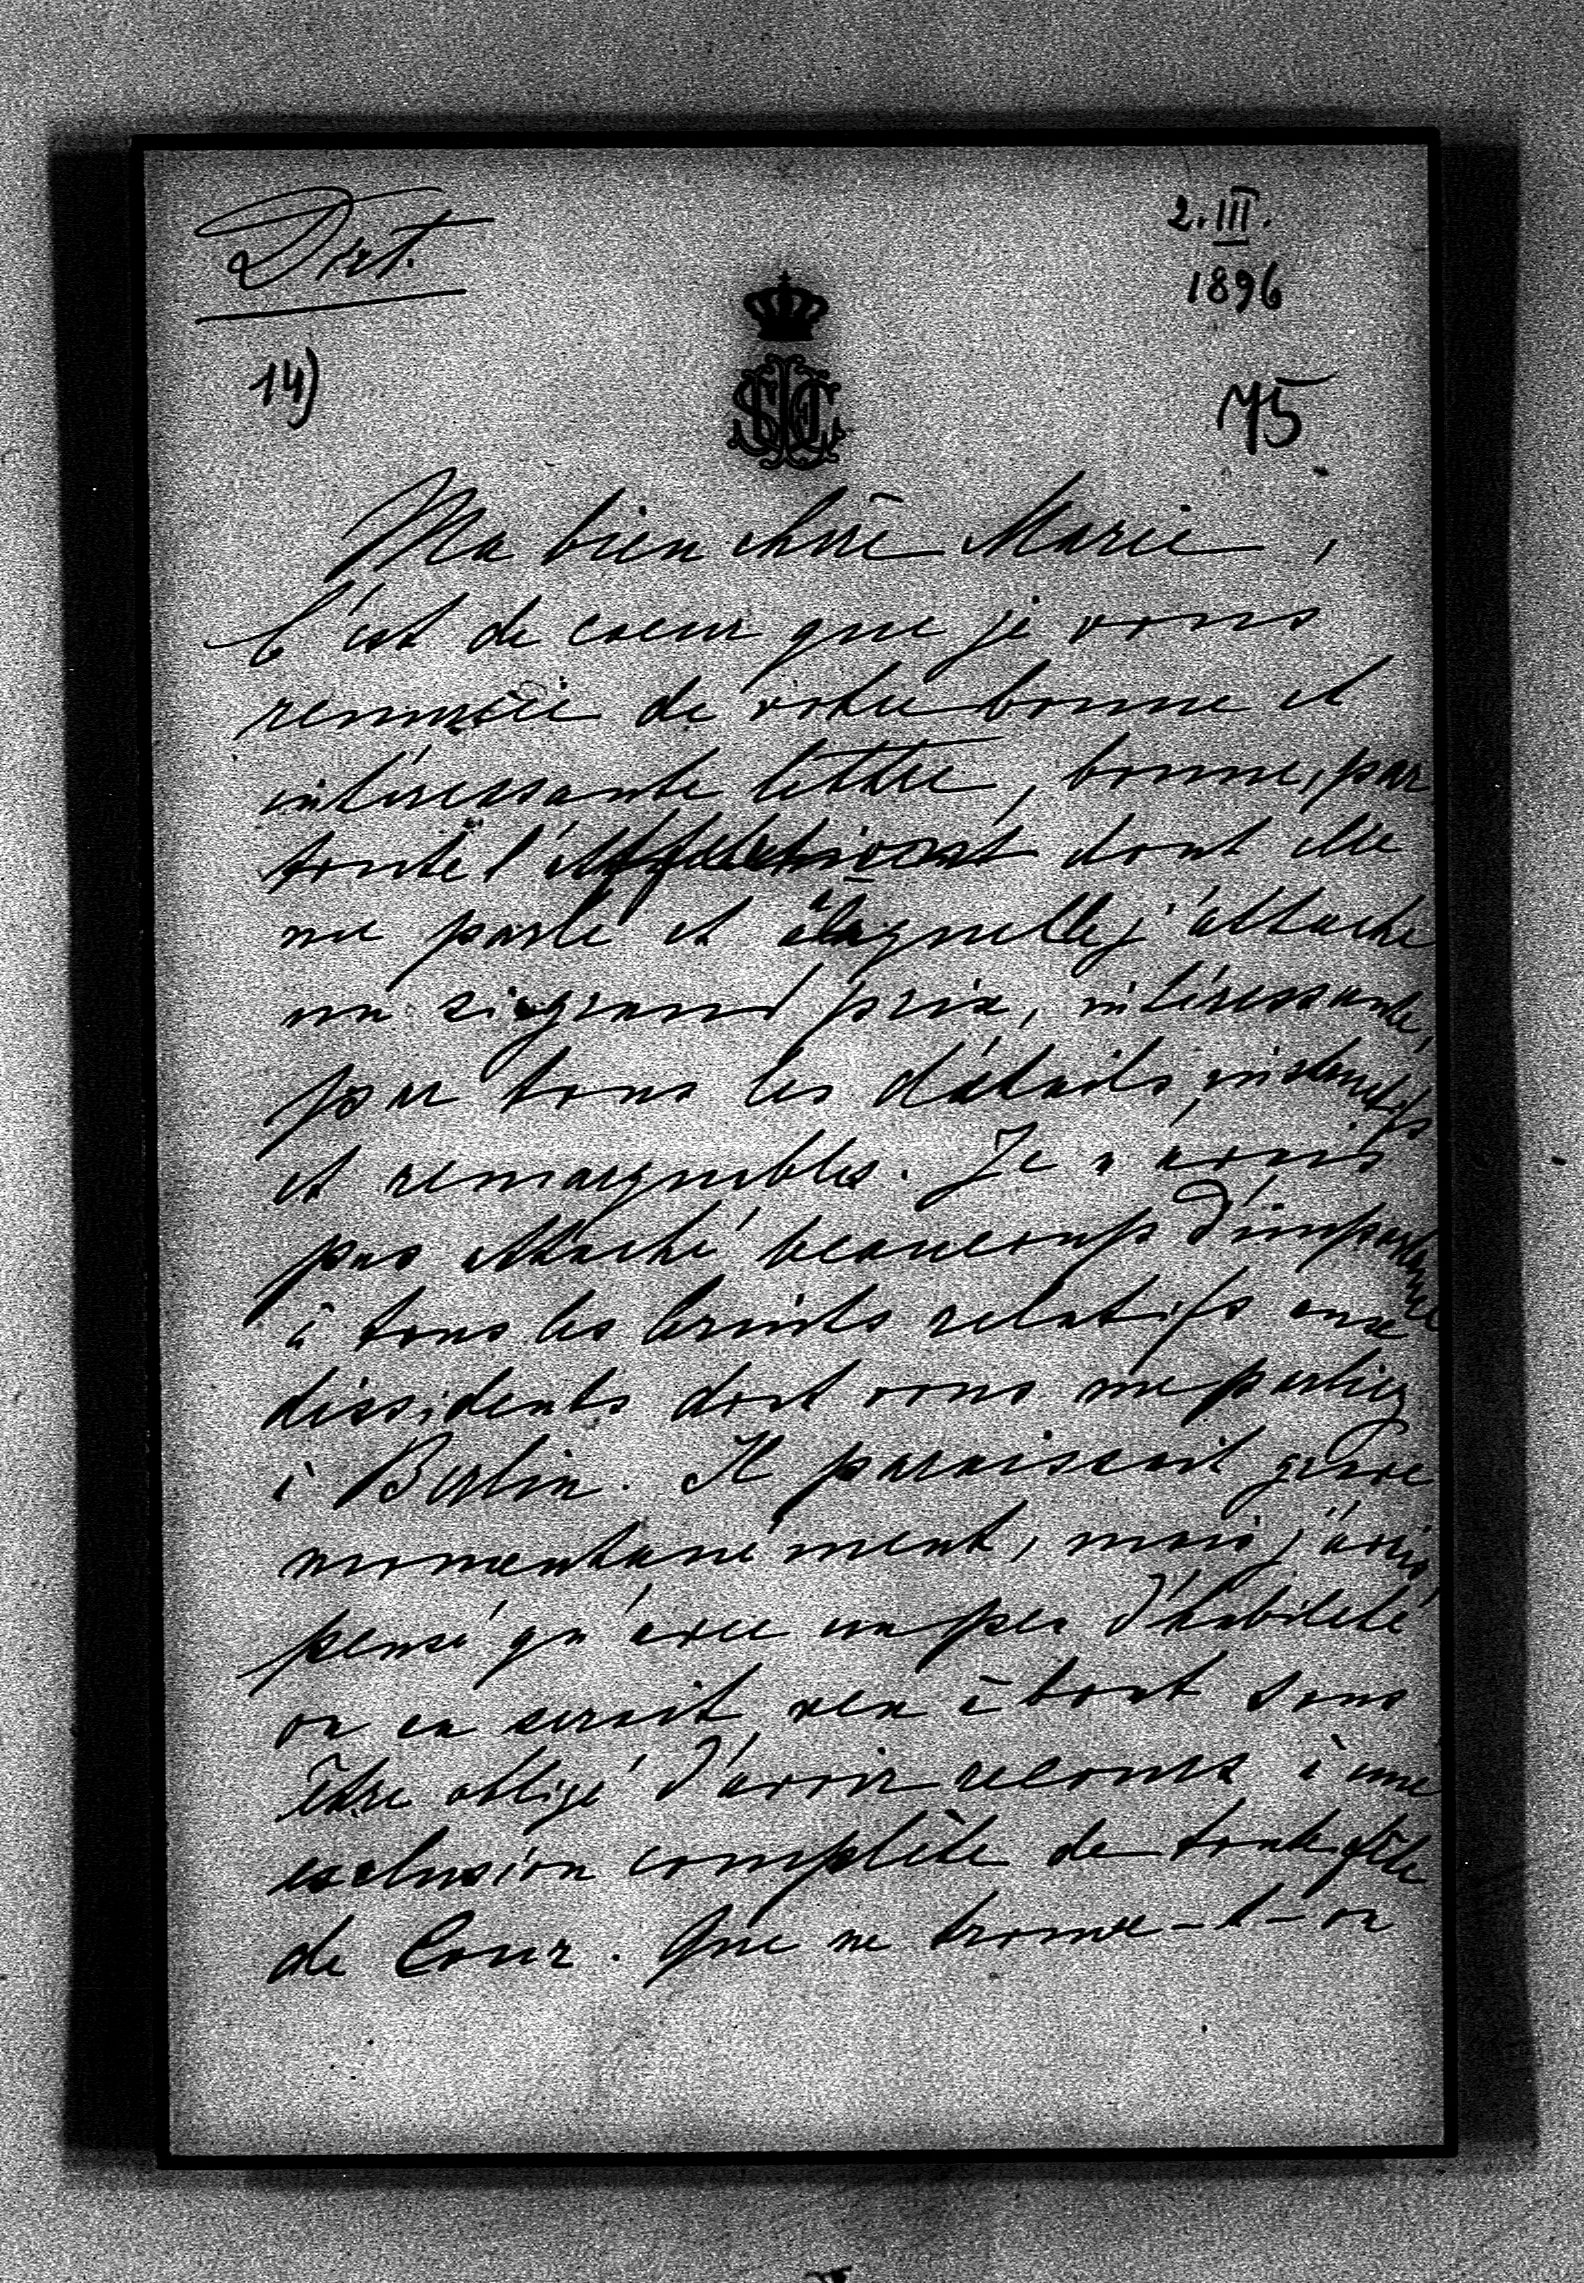 Dict.
2.III.
1896
14)
75
Ma bien chère Marie,
C'est de coeur que je vous
remercie de votre bonne et
intéressante lettre, bonne, par
toute l' dont elle
me parle et à laquelle j'attache
un si grand prix, intéressante,
par tous les détails instructifs
et remarquables. Je n'avais
pas attaché beaucoup d'importance
à tous les bruits relatifs aux
dissidents dont vous me parliez
à Berlin. Il paraissait
momentanément, mais j'avais
pensé qu'avec un peu d'habileté
on en serait venu à bout sans
être obligé d'avoir recours à une
exclusion complète de toute fête
de Cour. Que ne trouve-t-on